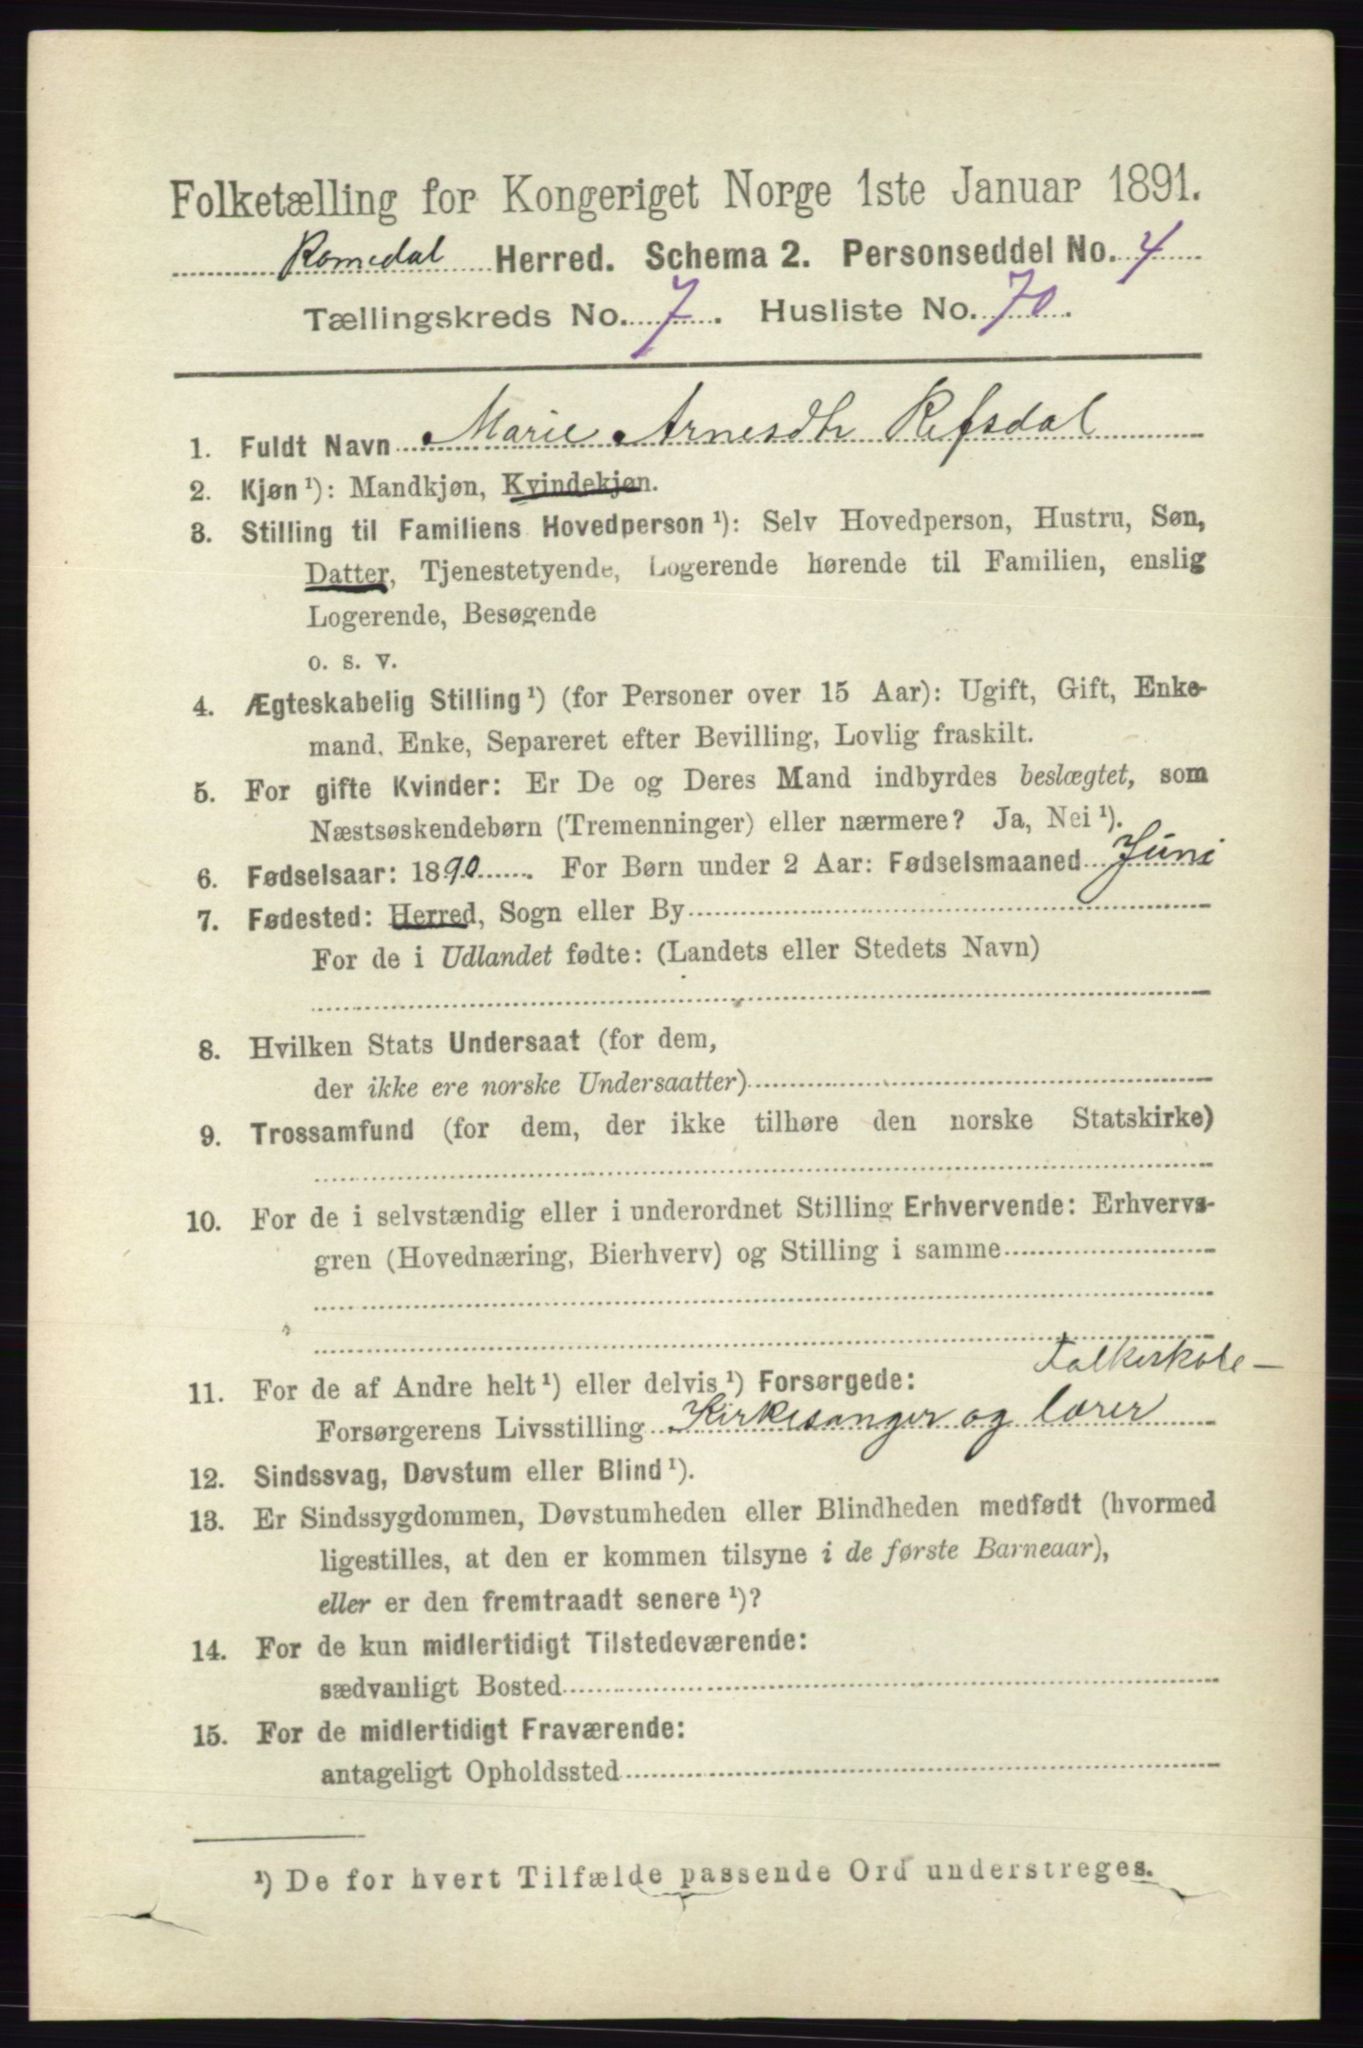 Folketælling for Kongeriget Norge 1ste Januar 1891.
Romedal Herred. Schema 2. Personseddel No. 4
Tællingskreds No. 7. Husliste No. 70.
1. Fuldt Navn Marie Arnesdtr Refsdal
2. Kjøn ¹): Mandkjøn, Kvindekjøn.
3. Stilling til Familiens Hovedperson ¹): Selv Hovedperson, Hustru, Søn,
Datter, Tjenestetyende, Logerende hørende til Familien, enslig
Logerende, Besøgende
o. s. v.
4. Ægteskabelig Stilling ¹) (for Personer over 15 Aar): Ugift, Gift, Enke-
mand, Enke, Separeret efter Bevilling, Lovlig fraskilt.
5. For gifte Kvinder: Er De og Deres Mand indbyrdes beslægtet, som
Næstsøskendebørn (Tremenninger) eller nærmere? Ja, Nei ¹).
6. Fødselsaar: 1890. For Børn under 2 Aar: Fødselsmaaned Juni
7. Fødested: Herred, Sogn eller By
For de i Udlandet fødte: (Landets eller Stedets Navn)
8. Hvilken Stats Undersaat (for dem,
der ikke ere norske Undersaatter)
9. Trossamfund (for dem, der ikke tilhøre den norske Statskirke)
10. For de i selvstændig eller i underordnet Stilling Erhvervende: Erhvervs-
gren (Hovednæring, Bierhverv) og Stilling i samme
Folkeskole-
11. For de af Andre helt ¹) eller delvis ¹) Forsørgede:
Forsørgerens Livsstilling Kirkesanger og lærer
12. Sindssvag, Døvstum eller Blind ¹).
13. Er Sindssygdommen, Døvstumheden eller Blindheden medfødt (hvormed
ligestilles, at den er kommen tilsyne i de første Barneaar),
eller er den fremtraadt senere ¹)?
14. For de kun midlertidigt Tilstedeværende:
sædvanligt Bosted
15. For de midlertidigt Fraværende:
antageligt Opholdssted
¹) De for hvert Tilfælde passende Ord understreges.